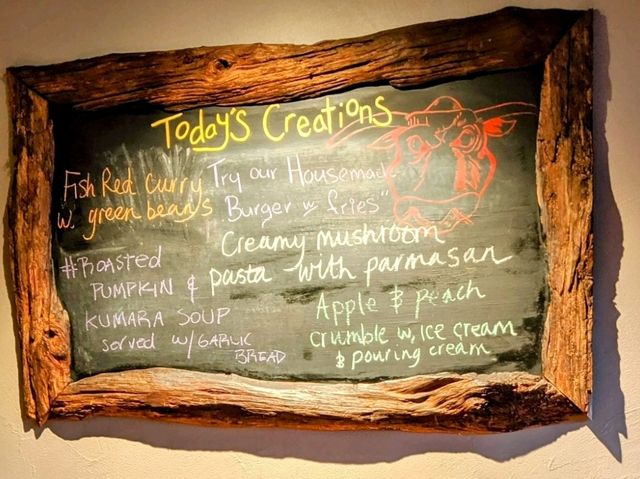 Today's Creations
Fish Red Curry
w. green beans
Try our Housemade
Burger w fries"
Creamy mushroom
pasta with parmasan
#Roasted
PUMPKIN &
KUMARA SOUP
served w/ GARLIC
BREAD
Apple & peach
crumble w, ice cream
& pouring cream